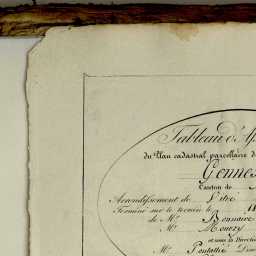 Tableau d'As
du Plan cadastral parcellaire de
Gennes
Canton de
Arrondissement de Vitré
Terminé sur le terrain le 11
de Mr. Bonnaire
Mr. Mowry
et sous la Direction
Mr. Pontallié